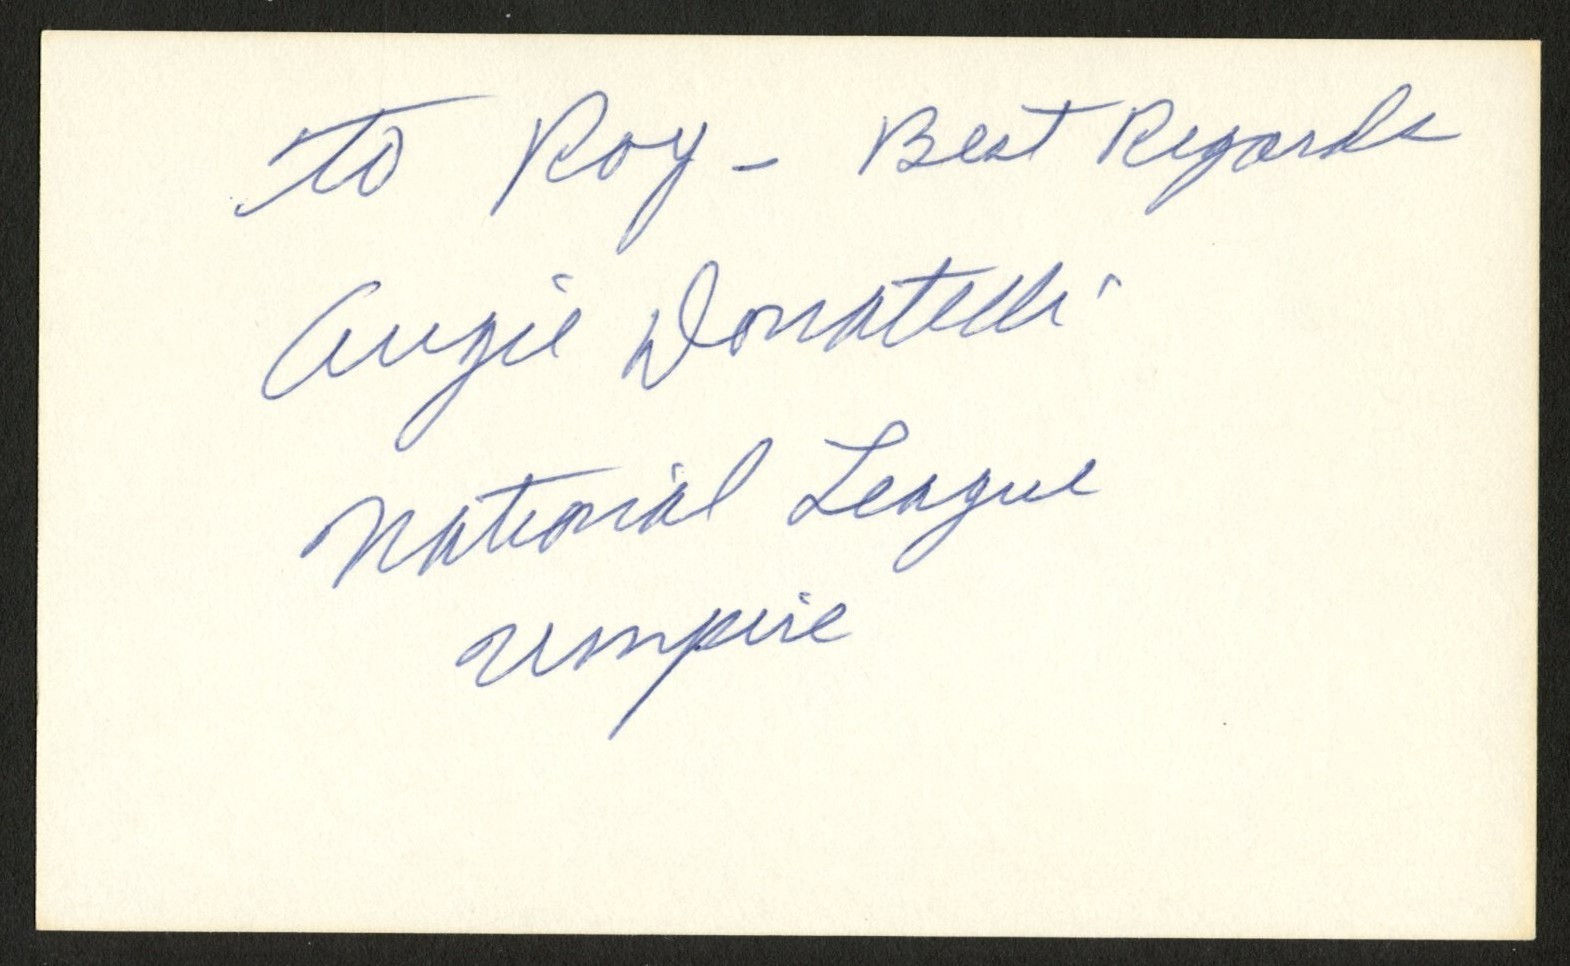 To Roy - Best Regards
Augie Donatelli
National League
Umpire